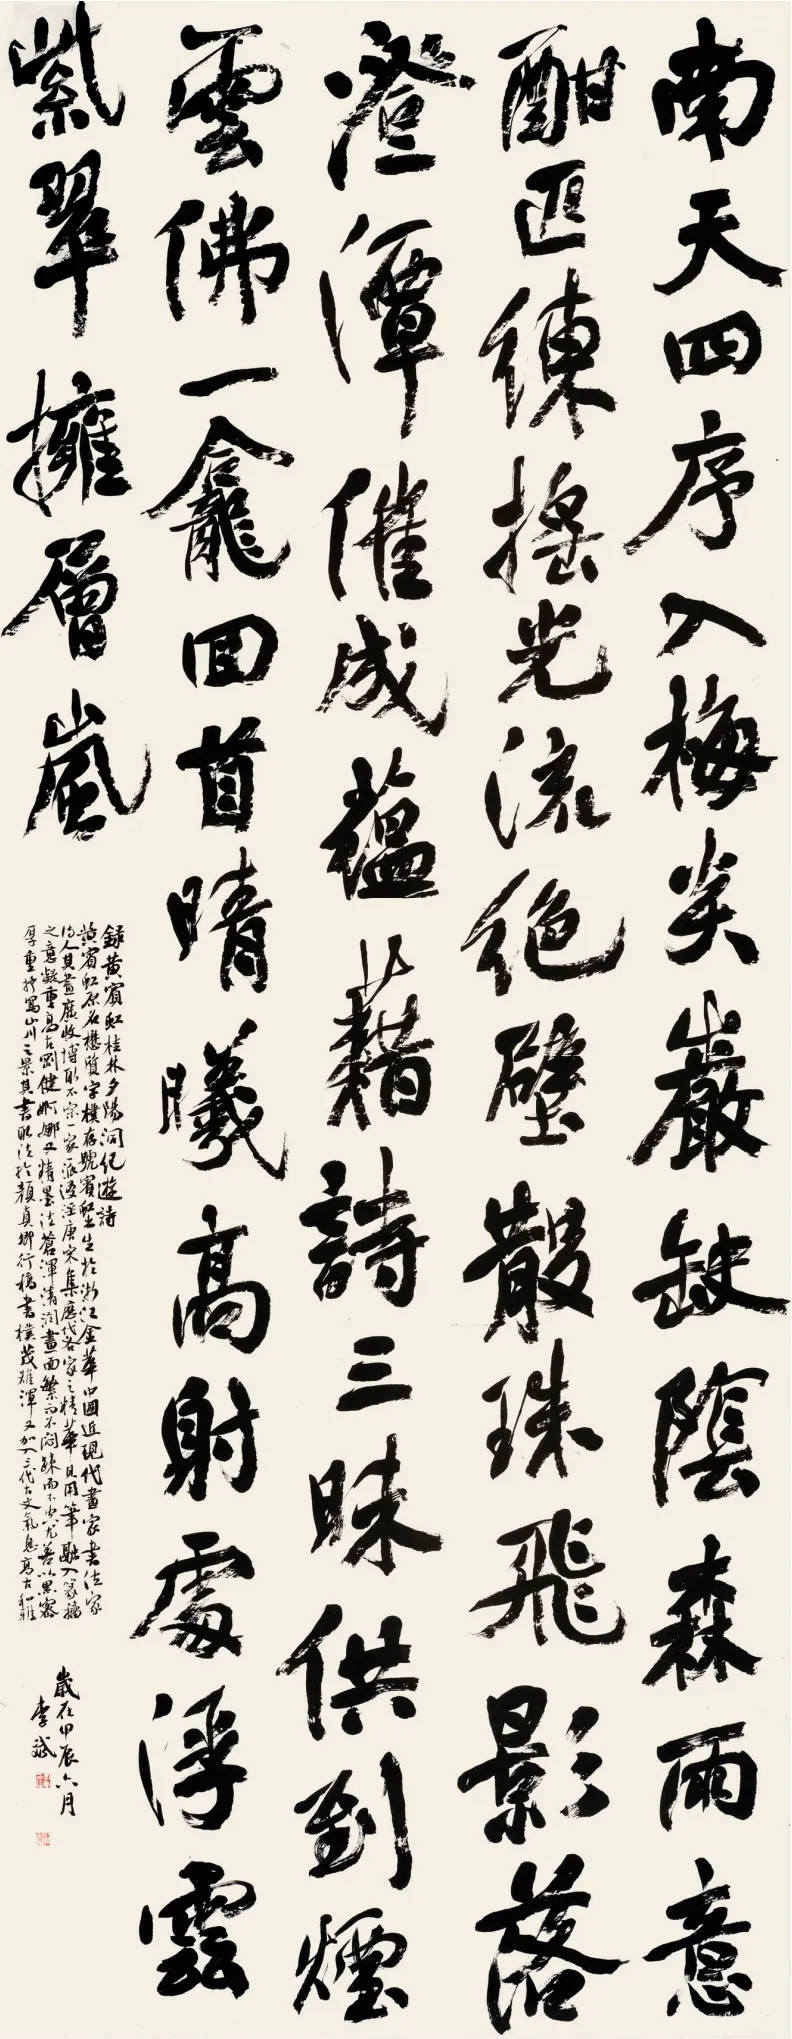 南天四序入梅炎巖缺陰森雨意
酣匹練搖光流絕壁散珠飛影落
澄潭催成蘊藉詩三昧供到煙
雲佛一龕回首晴曦高射處浮雲
紫翠擁層嵐
錄黃賓虹桂林夕陽洞紀遊詩
黃賓虹原名懋質字樸存號賓虹生於浙江金華中國近現代畫家書法家
詩人其畫廣收博取不宗一家派浸淫唐宋集歷代名家之精華且用筆融入篆籀
之意凝重高古剛健婀娜又精墨法蒼渾清潤畫面繁而不悶疎而不空尤善以黑密
厚重抒寫山川之景其書取法於顏真卿行楷書樸茂雄渾又加入三代古文氣息高古和雅
歲在甲辰六月
李斌